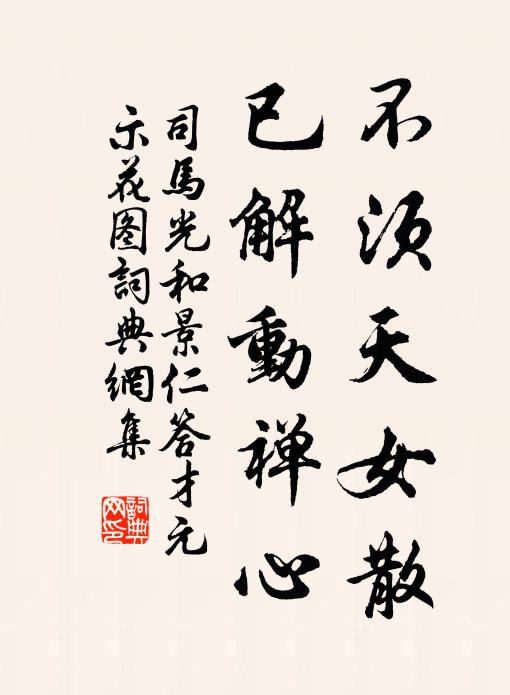 不須天女散
已解動禅心
司馬光和景仁答才元
示花图詞典網集
詞典
网印